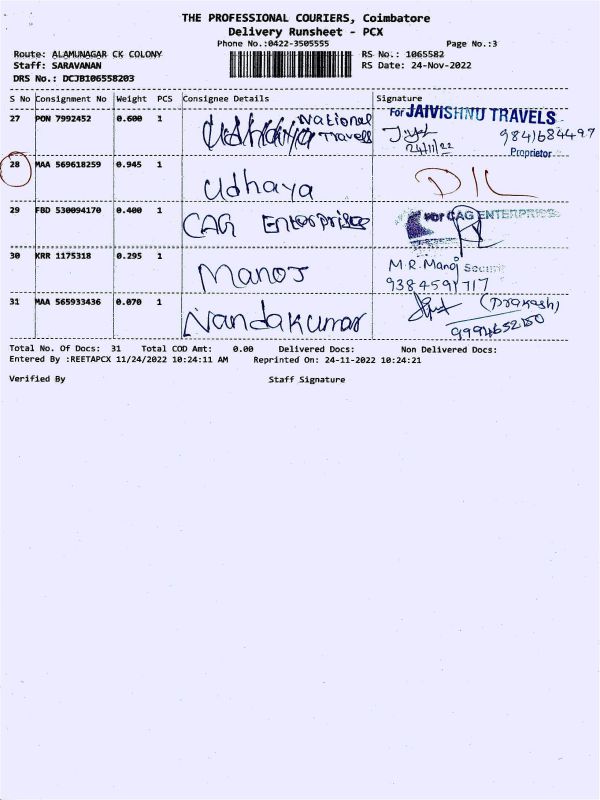 THE PROFESSIONAL COURIERS, Coimbatore
Delivery Runsheet - PCX
Phone No.:0422-3505555 Page No.:3
Route: ALAMUNAGAR CK COLONY RS No.: 1065582
Staff: SARAVANAN RS Date: 24-Nov-2022
DRS No.: DCJB106558203
S No Consignment No Weight PCS Consignee Details Signature
27 PON 7992452 0.600 1 National Travels For JAIVISHNU TRAVELS
24/11/22 9841684497
Proprietor
28 MAA 569618259 0.945 1 Udhaya D/L
29 FBD 530094170 0.400 1 CAG Enterprises For CAG ENTERPRISES
30 KRR 1175318 0.295 1 Manoj M.R. Manoj
9384591717
31 MAA 565933436 0.070 1 Nandakumar (Prakash)
Total No. Of Docs: 31 Total COD Amt: 0.00 Delivered Docs: Non Delivered Docs:
Entered By :REETAPCX 11/24/2022 10:24:11 AM Reprinted On: 24-11-2022 10:24:21
Verified By Staff Signature